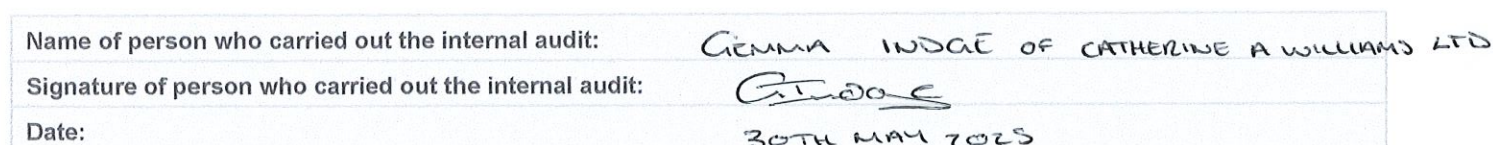 Name of person who carried out the internal audit: GEMMA INDGE OF CATHERINE A WILLIAMS LTD
Signature of person who carried out the internal audit: G Indge
Date: 30TH MAY 2025